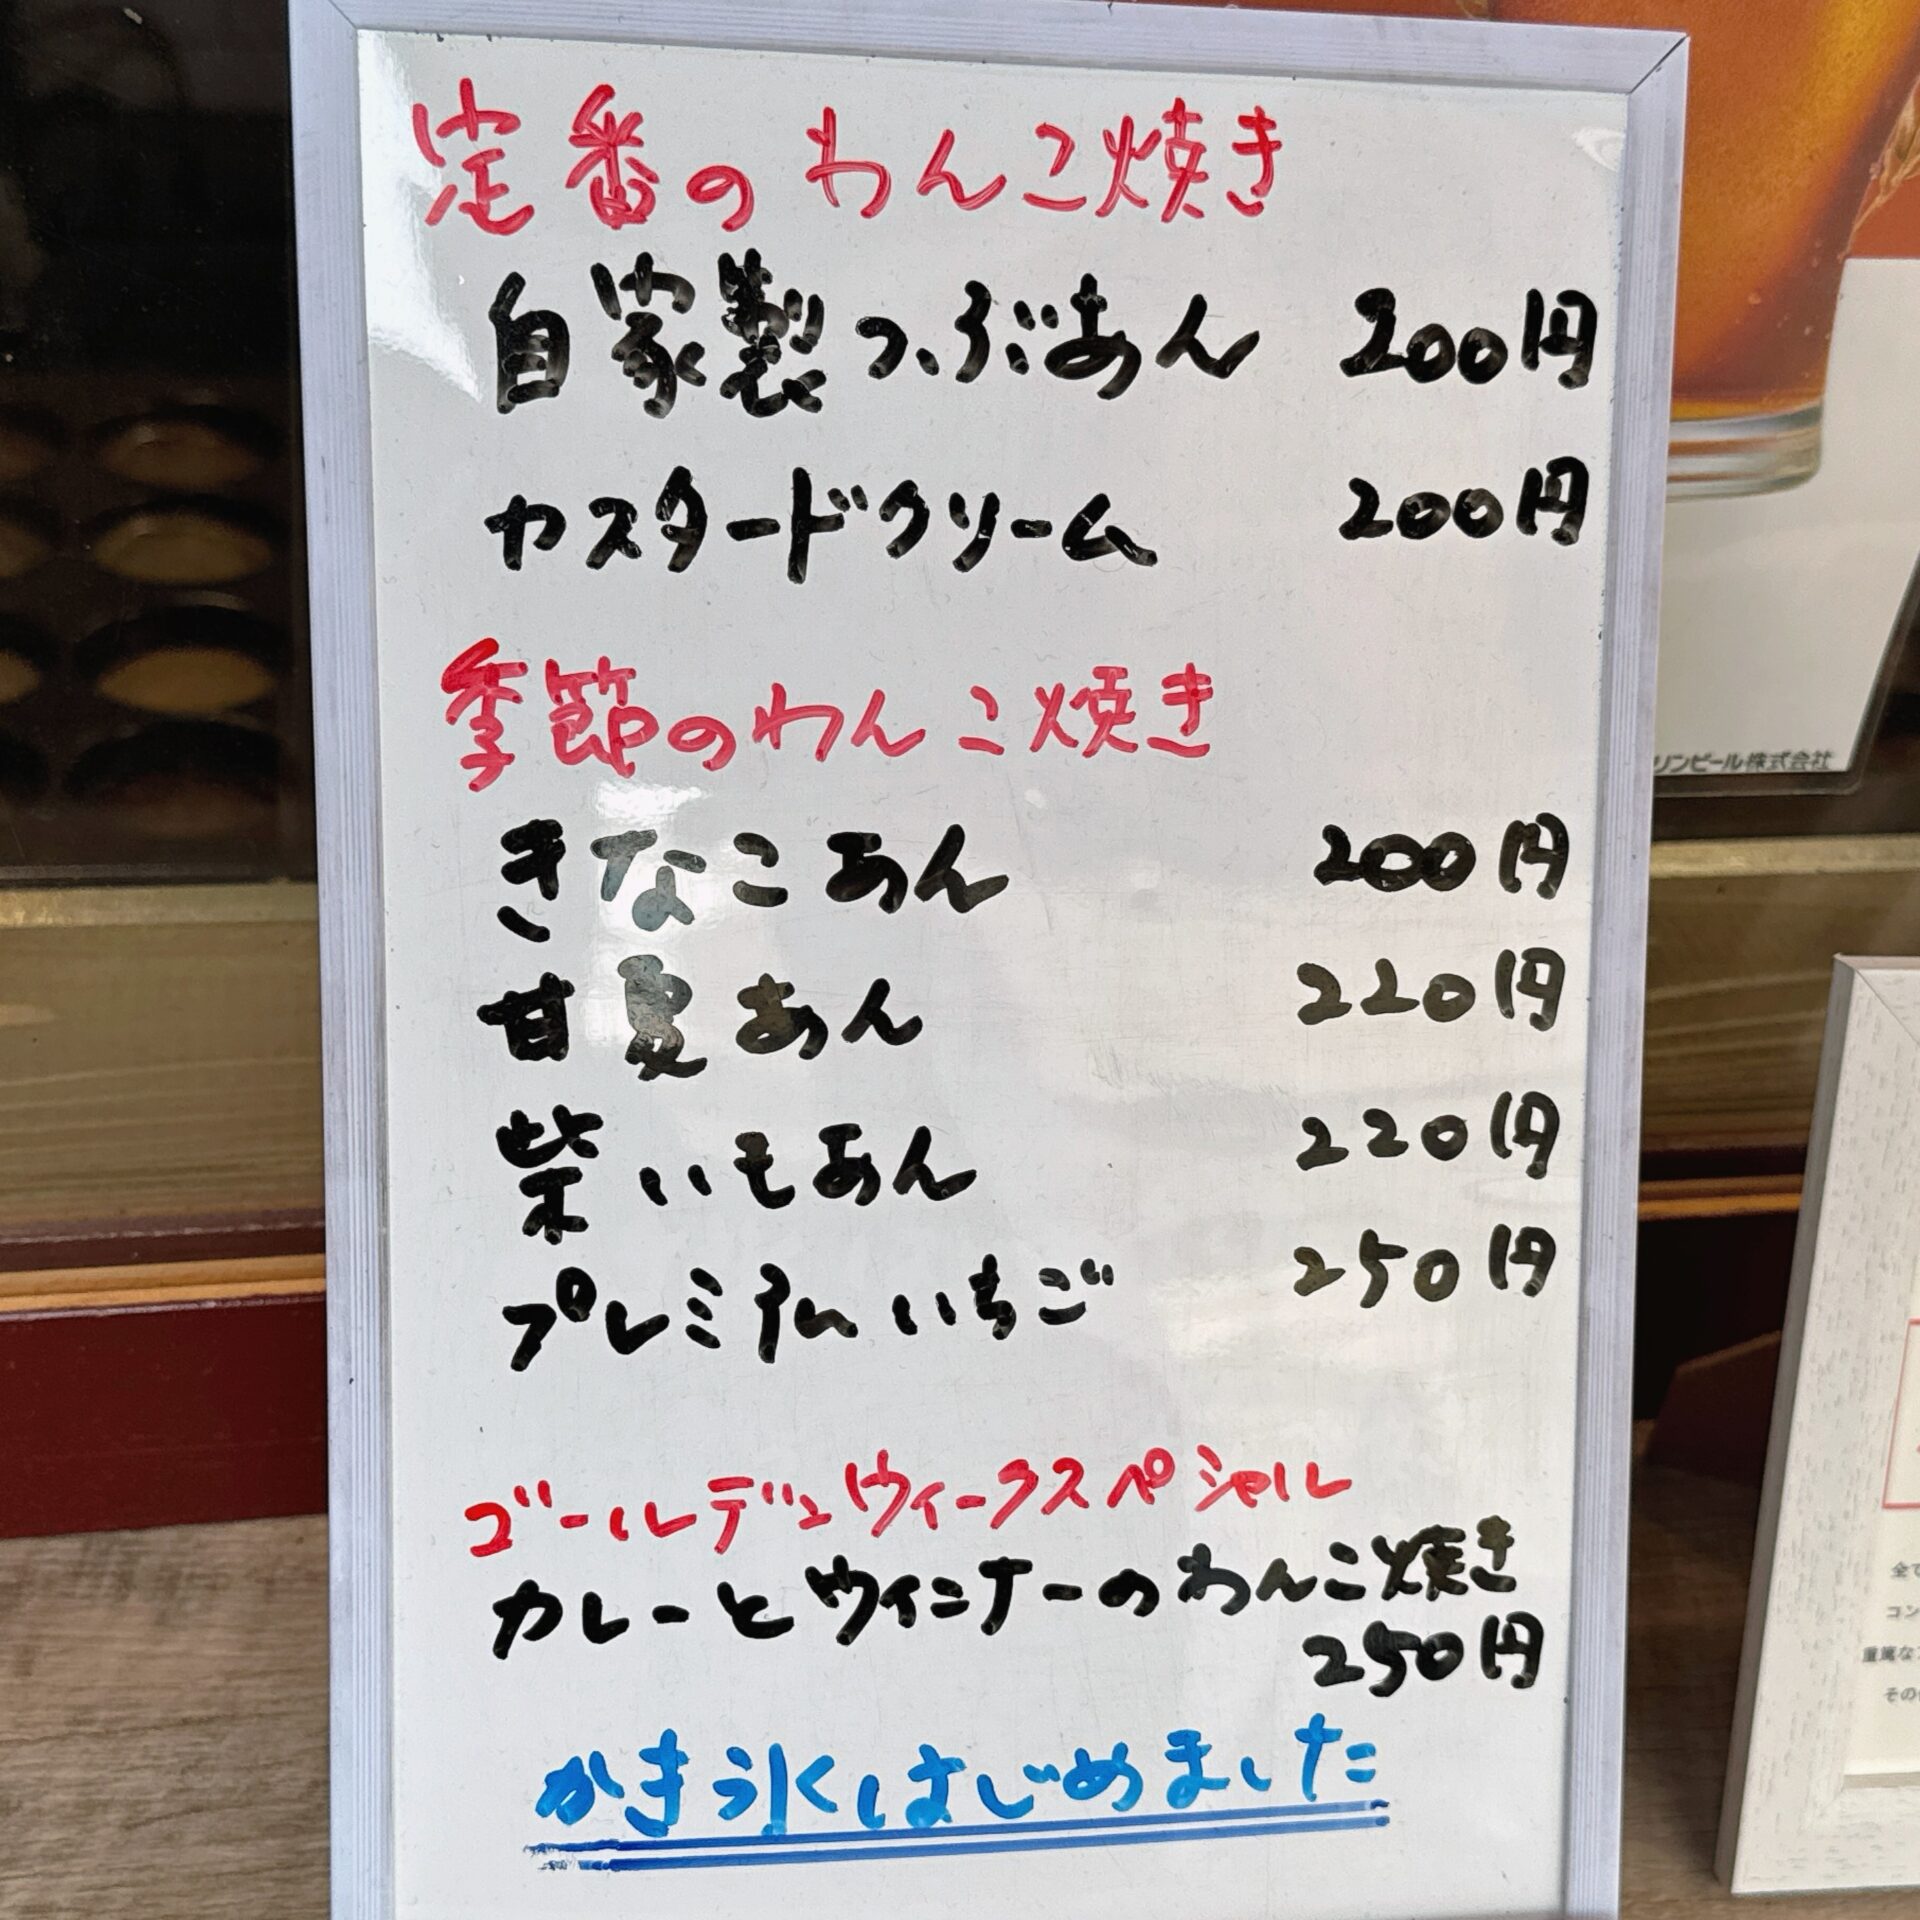 定番のわんこ焼き
自家製つぶあん 200円
カスタードクリーム 200円
季節のわんこ焼き
きなこあん 200円
甘夏あん 220円
紫いもあん 220円
プレミアムいちご 250円
ゴールデンウィークスペシャル
カレーとウインナーのわんこ焼き
250円
かき氷はじめました
リンビール株式会社
全て
コン
重篤な
その